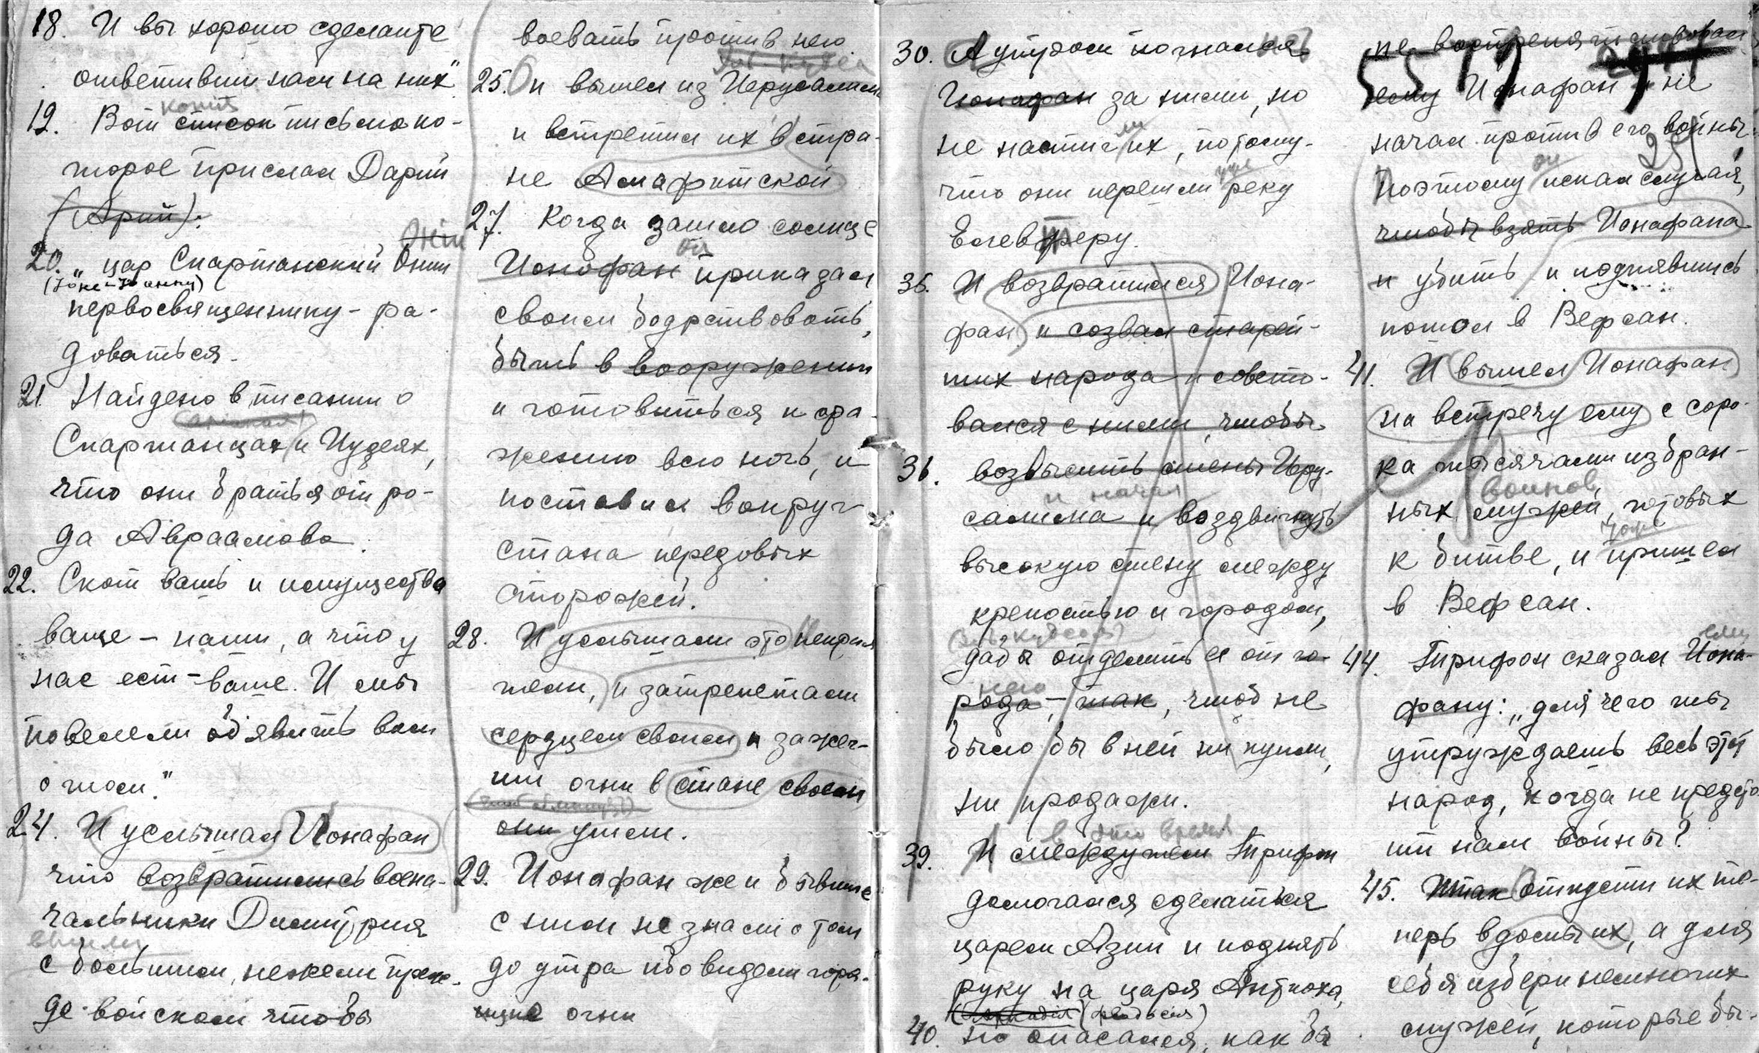 18. И вы хорошо сделаете
ответивши нам на них"
копия
19. Вот список письма ко-
торое прислал Дарий
(Арий).
Оний
20. „ цар Спартанский Онии
первосвященнику - ра-
доваться.
21 Найдено в писании о
Спартанцах и Иудеях,
что они братья от ро-
да Авраамова.
22. Скот ваш и имущество
ваше - наши, а что у
нас ест - ваше. И мы
повелели об'явить вам
о том."
24. И услышал Ионафан
что возвратились воена-
чальники Димитрия
вышли
с большим, нежели преж-
де войском чтобы
воевать против него
25. и вышел из Иерусалима
и встретил их в стра-
не Амафитской
27. Когда зашло солнце
он
Ионофан приказал
своим бодрствовать,
быть в вооружении
и готовиться к сра-
жению всю ночь, и
поставил вокруг
стана передовых
сторожей.
28. И услышали это неприя
тели, и затрепетали
сердцем своим и зажег-
ши огни в стане своем
они ушли.
29. Ионафан же и бывшие
с ним не знали о том
до утра ибо видели горя-
щие огни
30. А утром погнался
Ионафан за ними, но
не настиг их, потому-
уже
что они перешли реку
Елевферу.
35. И возвратился Иона-
фан и созвал старей-
ших народа и совето-
вался с ними, чтобы
36. возвысить стены Иеру-
и начал
салима и воздвигнуть
высокую стену между
крепостью и городом,
дабы отделить ея от го-
него
рода - так, чтоб не
было бы в ней ни купли,
ни продажи.
в это время
39. И между тем Трифон
домогался сделаться
царем Азии и поднять
руку на царя Антиоха,
40. но опасался, как бы
не воспрепятствовал
5519
ему Ионафан и не
начал против его войны.
251
он
Поэтому искал случая,
чтобы взять Ионафана
и убить и поднявшись
пошол в Вефсан.
41. И вышел Ионафан
на встречу ему с соро-
ка тысячами избран-
воинов
ных мужей, готовых
тоже
к битве, и пришел
в Вефсан.
ему
44. Трифон сказал Иона-
фану: „для чего ты
утруждаешь весь этот
народ, когда не предсто
ит нам войны?
45. Итак отпусти их те-
перь в домы их, а для
себя избери немногих
мужей, которые бы-